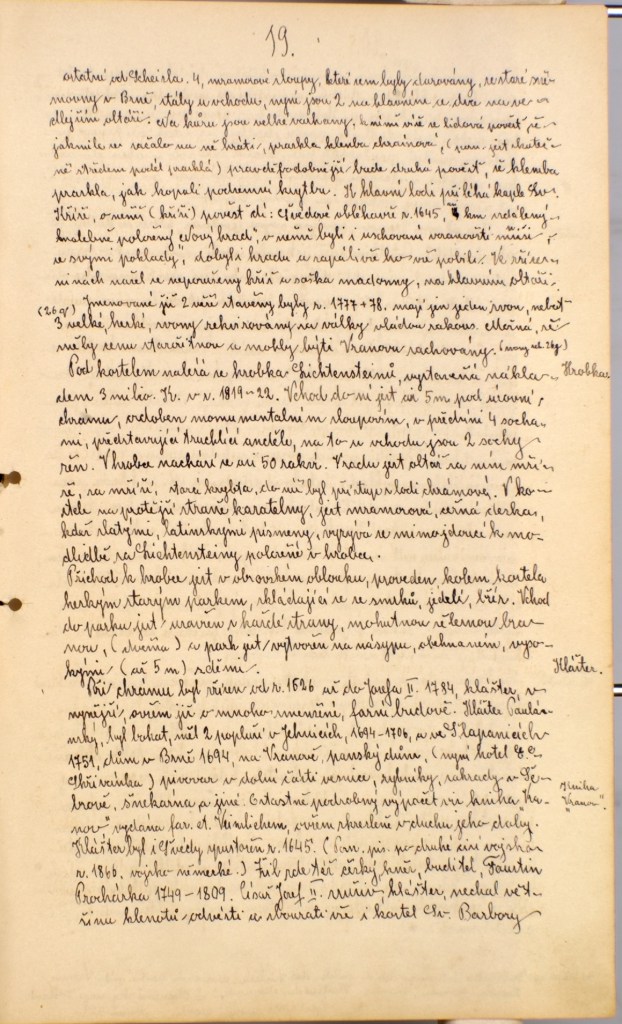 19.
ostatní od Scheirla. 4, mramorové sloupy, které sem byly darovány, ze staré sně-
movny v Brně stály u vchodu, nyní jsou 2 na hlavním a dva na ve-
dlejším oltáři. Na kůru jsou velké varhany, k nimž víže se lidová pověst, že
jakmile se začalo na ně hráti, praskla klenba chrámová, (jest skuteč-
ně středem podél prasklá) pravděpodobnější bude druhá pověst, že klenba
praskla, jak kopali podzemní kryptu. K hlavní lodi přiléhá kaple Sv.
Kříže, o němž (kříži) pověst dí: Švédové obléhavše r. 1645, km vzdálený
malebně položený „Nový hrad", v němž byli i uschovaní vranovští mniši,
se svými poklady, dobyli hradu a zapálivše ho vše pobili. Ve zříce-
ninách nalezl se neporušený kříž a soška madonny, na hlavním oltáři.
(26q) Jmenované již 2 věže stavěny byly r. 1777+78. mají jen jeden zvon, neboť
3 velké, hezké, zvony rekvirovány za války vládou rakous. Možná, že
měly cenu starožitnou a mohly býti Vranovu zachovány.
Pod kostelem nalézá se hrobka Lichtensteinů, vystavěná nákla-
Hrobka.
dem 3 milio. K. v r. 1819-22. Vchod do ní jest až 5 m pod úrovní
chrámu, ozdoben monumentálním sloupovím, v předsíni 4 socha-
mi, představující truchlící anděle, na to u vchodu jsou 2 sochy
žen. V hrobce nachází se asi 50 rakví. Vzadu jest oltář za ním mří-
že, za mříží, stará krypta, do níž byl přístup z lodi chrámové. V ko-
stele na protější straně kazatelny, jest mramorová, černá deska,
kdež zlatými, latinskými písmeny, vyzývá se mimojdoucí k mo-
dlidbě za Lichtensteiny položené v hrobce.
Příchod k hrobce jest v obrovském oblouku, proveden kolem kostela
hezkým starým parkem, skládající se ze smrků, jedelí, bříz. Vchod
do parku jest uzavřen s každé strany, mohutnou železnou bra-
nou, (dveřma) a park jest vytvořen na násypu, obehnaném, vyso-
kými (až 5 m) zděmi.
Klášter.
Při chrámu byl zřízen od r. 1626 až do Josefa II. 1784, klášter, v
nynější, ovšem již o mnoho zmenšené, farní budově. Klášter Paulán-
ský, byl bohat, měl 2 poplužní v Jehnicích, 1694-1706, a ve Šlapanicích
1751, dům v Brně 1694, na Vranově, panský dům, (nyní hotel
Skřivánka) pivovar v dolní části vesnice, rybníky, zahrady v Še-
brově, šnekárna a jiné. Ostatně podrobný výpočet viz kniha „Vra-
Kniha
„Vranov".
nov" vydána far. A. Weinlichem, ovšem zkresleně v duchu jeho doby.
Klášter byl i Švédy zpustošen r. 1645. (Pozn. pís. po druhé číší vojska
r. 1866. vojsko německé.) Žil zde též český kněz, buditel, Faustin
Procházka 1749-1809. Císař Josef II. zrušiv, klášter, nechal vět-
šinu klenotů odvésti a zbourati vše i kostel Sv. Barbory